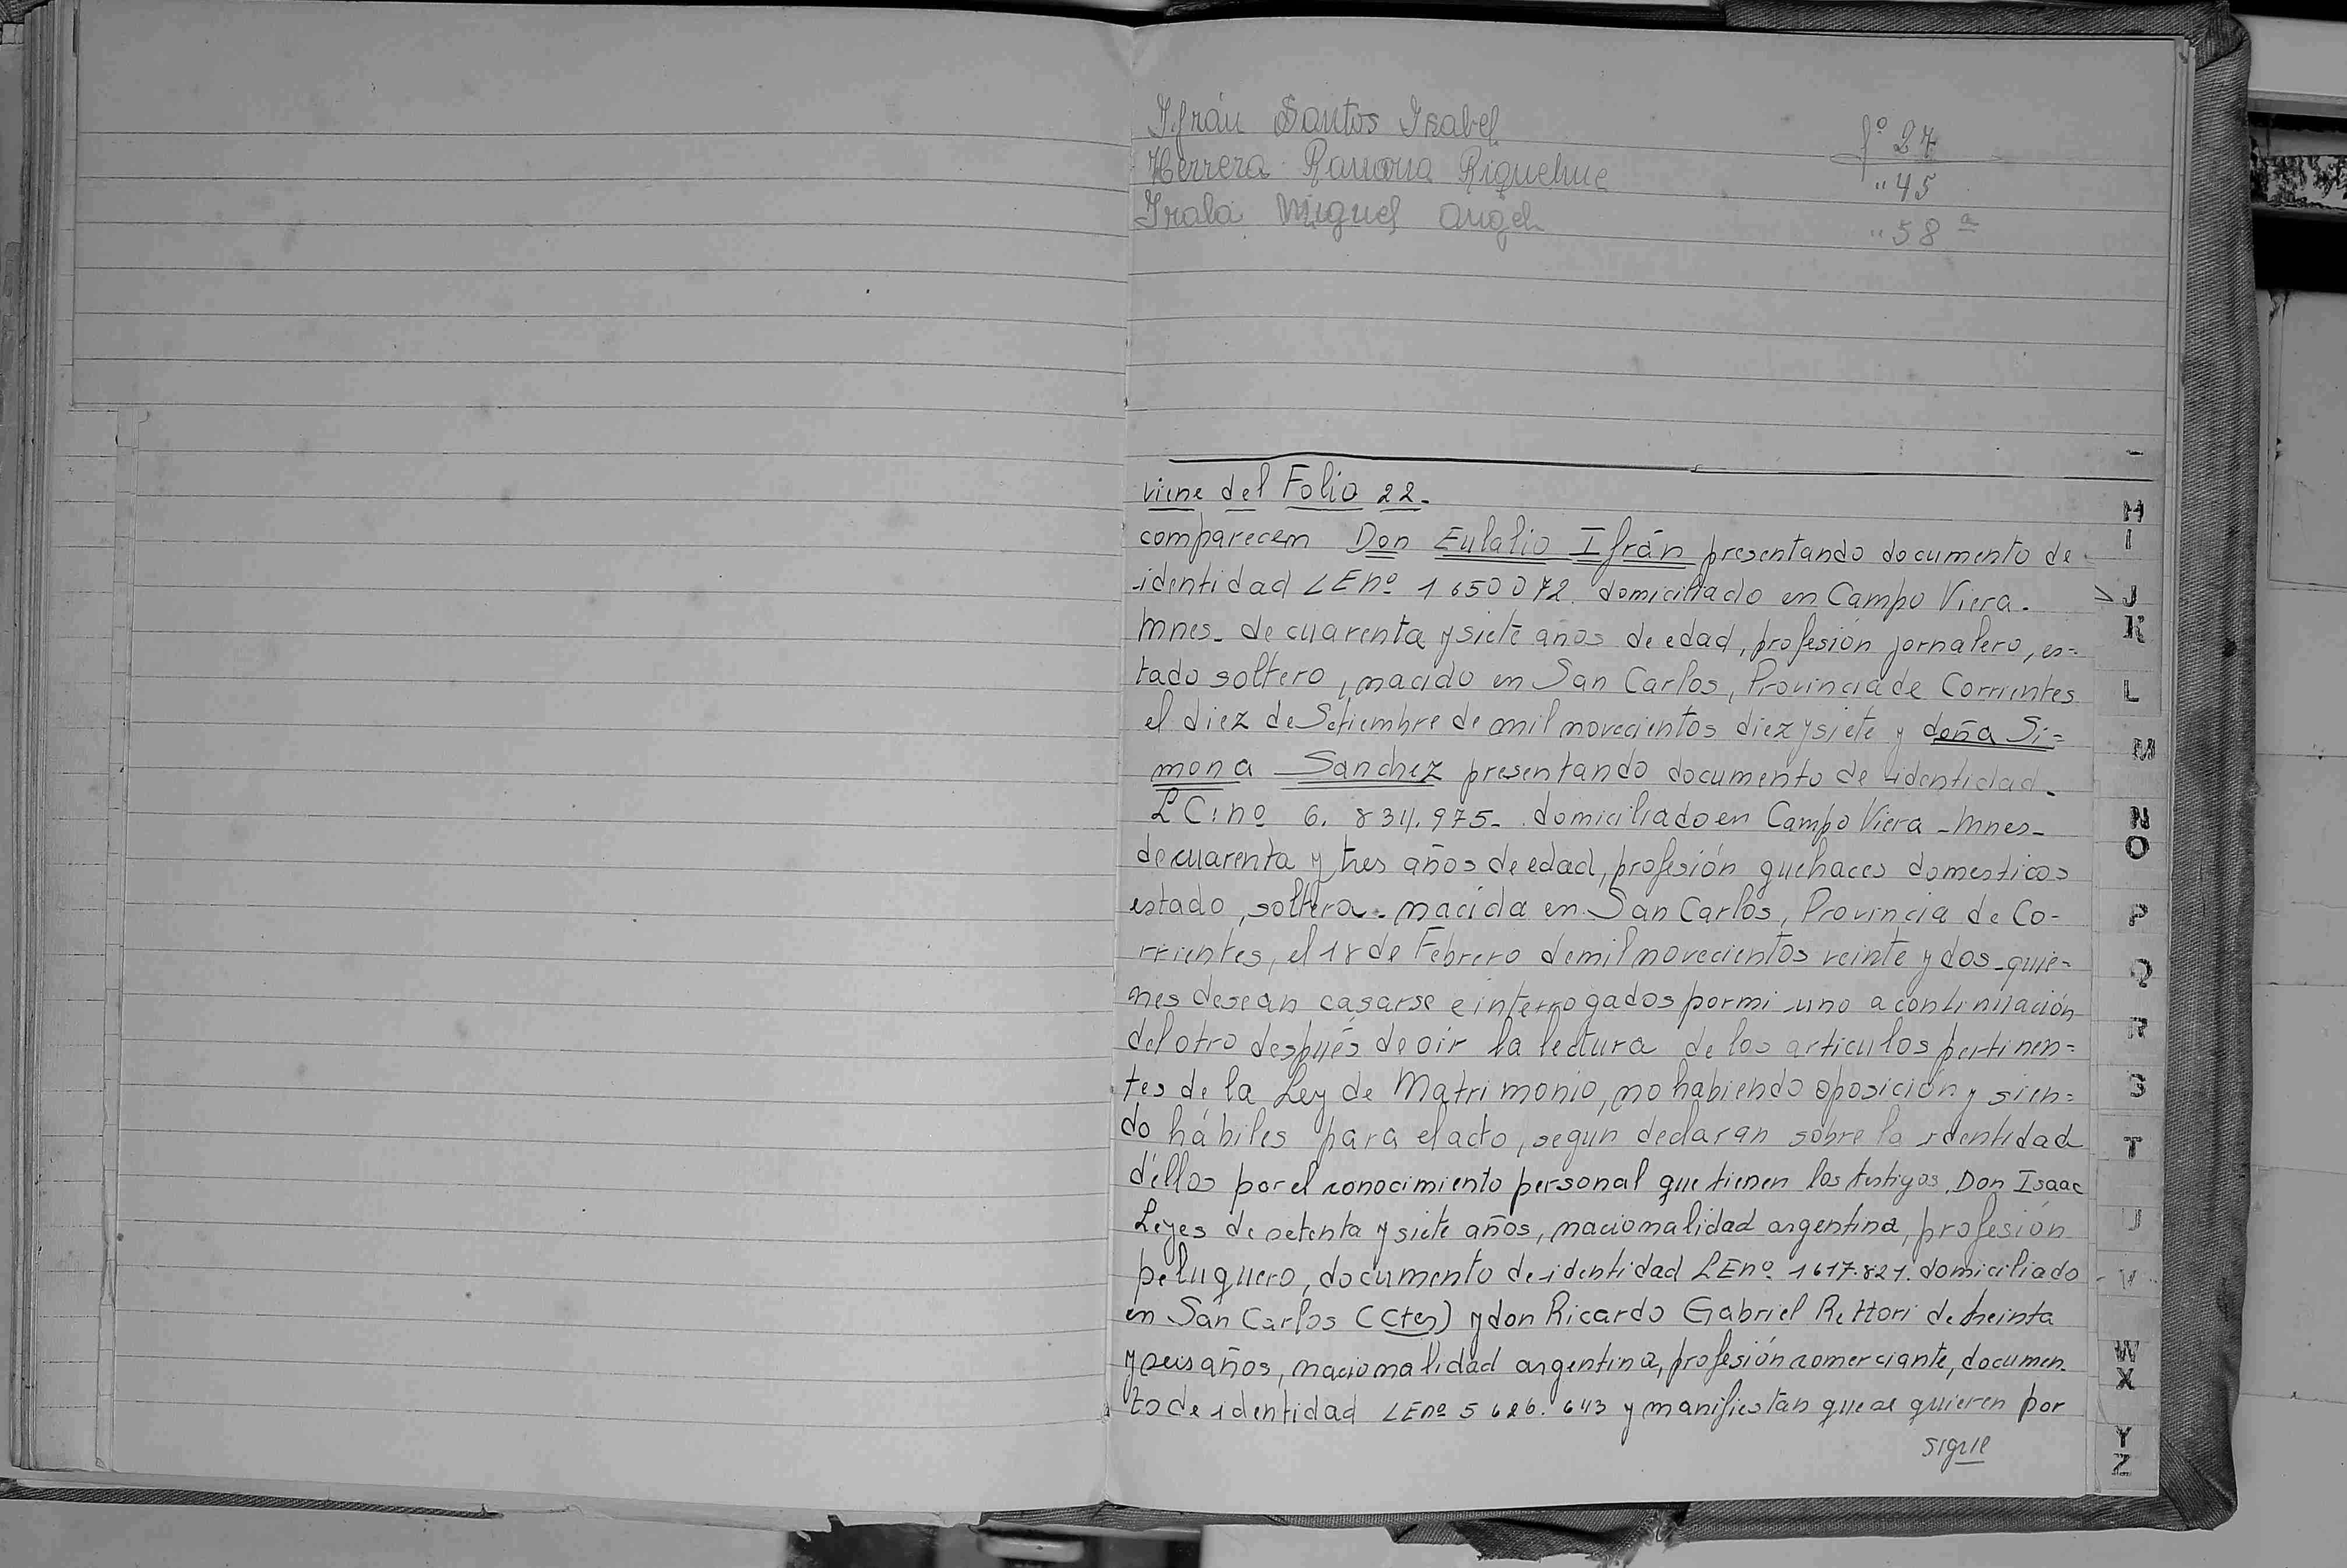 Ifrán Santos Isabel fº 27
Herrera Ramona Riquelme "45
Irala Miguel Angel "58 a
viene del Folio 22-
comparecen Don Eulalio Ifrán presentando documento de
identidad LEnº 1650072. domiciliado en Campo Viera-
Mnes- de cuarenta y siete años de edad, profesión jornalero, es=
tado soltero, nacido en San Carlos, Provincia de Corrientes
el diez de Setiembre de mil novecientos diez y siete y doña Si=
mona Sanchez presentando documento de identidad-
LC:nº 6.834.975- domiciliado en Campo Viera -Mnes-
de cuarenta y tres años de edad, profesión quehaces domesticos
estado, soltera. nacida en San Carlos, Provincia de Co-
rrientes, el 18 de Febrero de mil novecientos veinte y dos-quie=
nes desean casarse e interrogados por mi uno a continuación
del otro después de oir la lectura de los articulos pertinen=
tes de la Ley de Matrimonio, no habiendo oposición y sien=
do hábiles para el acto, segun declaran sobre la identidad
d'éllos por el conocimiento personal que tienen los testigos, Don Isaac
Leyes de setenta y siete años, nacionalidad argentina, profesión
peluquero, documento de identidad LEnº 1617.821. domiciliado
en San Carlos (Ctes) y don Ricardo Gabriel Rettori de treinta
y seis años, nacionalidad argentina, profesión comerciante, documen-
to de identidad LEnº 5626.643 y manifiestan que se quieren por
sigue
H
I
J
K
L
M
N
O
P
Q
R
S
T
U
V
W
X
Y
Z